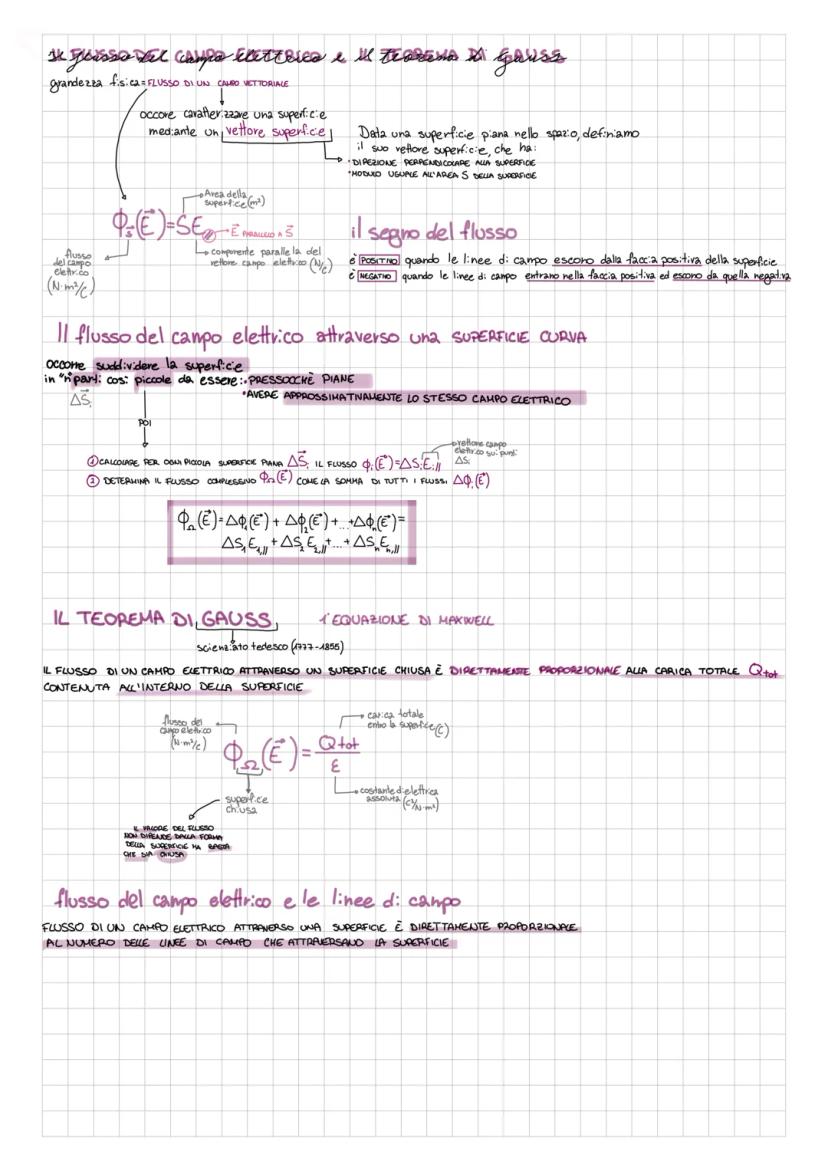 Il FLUSSO DEL CAMPO ELETTRICO e il TEOREMA DI Gauss
grandezza fisica = FLUSSO DI UN CAMPO VETTORIALE
occorre caratterizzare una superficie
mediante un vettore superficie
Data una superficie piana nello spazio, definiamo
il suo vettore superficie, che ha:
• DIREZIONE PERPENDICOLARE ALLA SUPERFICIE
• MODULO UGUALE ALL'AREA S DELLA SUPERFICIE
Area della
superficie (m²)
Φ_S⃗(E⃗)=SE_//
E⃗ PARALLELO A S⃗
flusso
del campo
elettrico
(N·m²/C)
componente parallela del
vettore campo elettrico (N/C)
il segno del flusso
è POSITIVO quando le linee di campo escono dalla faccia positiva della superficie
è NEGATIVO quando le linee di campo entrano nella faccia positiva ed escono da quella negativa
Il flusso del campo elettrico attraverso una SUPERFICIE CURVA
occorre suddividere la superficie
in "n" parti così piccole da essere: • PRESSOCCHÈ PIANE
• AVERE APPROSSIMATIVAMENTE LO STESSO CAMPO ELETTRICO
ΔS⃗_i
POI
vettore campo
elettrico sui punti
ΔS_i
① CALCOLARE PER OGNI PICCOLA SUPERFICIE PIANA ΔS⃗_i IL FLUSSO Φ_i(E⃗)=ΔS_iE_i//
② DETERMINA IL FLUSSO COMPLESSIVO Φ_Ω(E⃗) COME LA SOMMA DI TUTTI I FLUSSI ΔΦ_i(E⃗)
Φ_Ω(E⃗)=ΔΦ_1(E⃗)+ΔΦ_2(E⃗)+...+ΔΦ_n(E⃗)=
ΔS_1E_1,//+ΔS_2E_2,//+...+ΔS_nE_n,//
IL TEOREMA DI GAUSS 1ª EQUAZIONE DI MAXWELL
scienziato tedesco (1777-1855)
IL FLUSSO DI UN CAMPO ELETTRICO ATTRAVERSO UN SUPERFICIE CHIUSA È DIRETTAMENTE PROPORZIONALE ALLA CARICA TOTALE Q_tot
CONTENUTA ALL'INTERNO DELLA SUPERFICIE
flusso del
campo elettrico
(N·m²/C)
carica totale
entro la superficie (C)
Φ_Ω(E⃗)=Q_tot/ε
superficie
chiusa
costante dielettrica
assoluta (C²/N·m²)
IL VALORE DEL FLUSSO
NON DIPENDE DALLA FORMA
DELLA SUPERFICIE MA BASTA
CHE SIA CHIUSA
flusso del campo elettrico e le linee di campo
FLUSSO DI UN CAMPO ELETTRICO ATTRAVERSO UNA SUPERFICIE È DIRETTAMENTE PROPORZIONALE
AL NUMERO DELLE LINEE DI CAMPO CHE ATTRAVERSANO LA SUPERFICIE